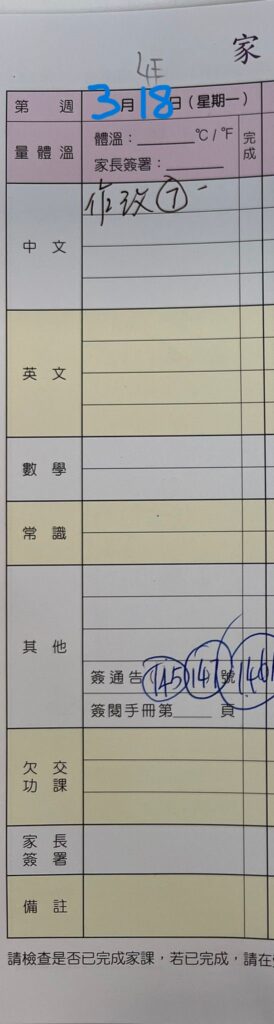 4E
家
第 週 3月18日(星期一)
量體溫 體溫：______℃/℉ 完成
家長簽署：______
中文 作改⑦
英文
數學
常識
其他
簽通告 145 147 號 146
簽閱手冊第____頁
欠交功課
家長簽署
備註
請檢查是否已完成家課，若已完成，請在